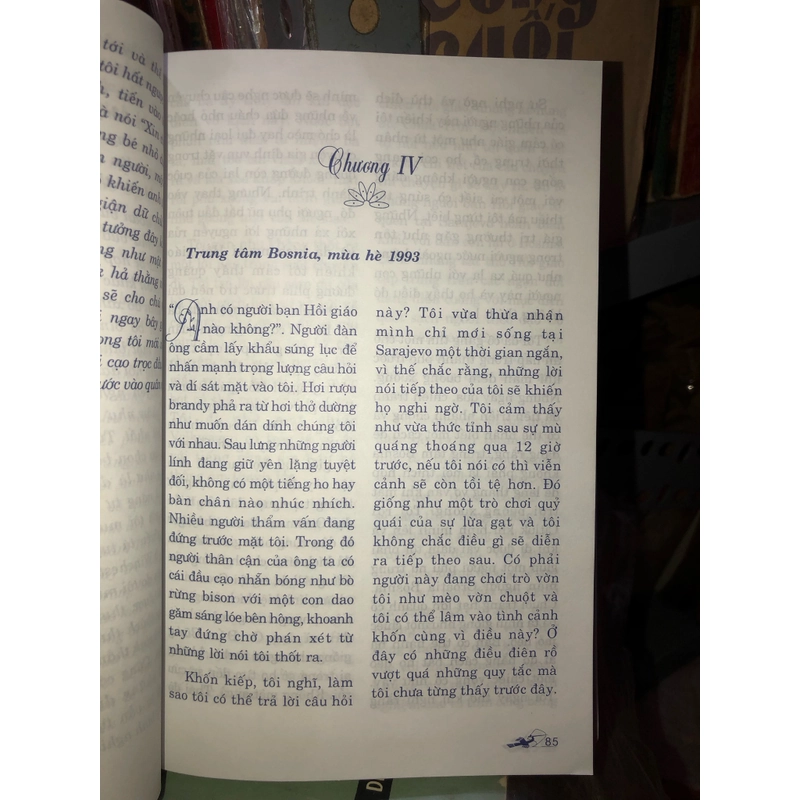 tới và
tôi hất
tiến vào
nói "Xin
bé nhỏ
người,
khiến anh
giận dữ
tưởng đây
như một
hả thằng
sẽ cho
ngay bây
tôi
cạo trọc
vào
Chương IV
Trung tâm Bosnia, mùa hè 1993
“Anh có người bạn Hồi giáo
nào không?”. Người đàn
ông cầm lấy khẩu súng lục để
nhấn mạnh trọng lượng câu hỏi
và dí sát mặt vào tôi. Hơi rượu
brandy phả ra từ hơi thở dường
như muốn dán dính chúng tôi
với nhau. Sau lưng những người
lính đang giữ yên lặng tuyệt
đối, không có một tiếng ho hay
bàn chân nào nhúc nhích.
Nhiều người thẩm vấn đang
đứng trước mặt tôi. Trong đó
người thân cận của ông ta có
cái đầu cạo nhẵn bóng như bò
rừng bison với một con dao
găm sáng lóe bên hông, khoanh
tay đứng chờ phán xét từ
những lời nói tôi thốt ra.
Khốn kiếp, tôi nghĩ, làm
sao tôi có thể trả lời câu hỏi
này? Tôi vừa thừa nhận
mình chỉ mới sống tại
Sarajevo một thời gian ngắn,
vì thế chắc rằng, những lời
nói tiếp theo của tôi sẽ khiến
họ nghi ngờ. Tôi cảm thấy
như vừa thức tỉnh sau sự mù
quáng thoáng qua 12 giờ
trước, nếu tôi nói có thì viễn
cảnh sẽ còn tồi tệ hơn. Đó
giống như một trò chơi quỷ
quái của sự lừa gạt và tôi
không chắc điều gì sẽ diễn
ra tiếp theo sau. Có phải
người này đang chơi trò vờn
tôi như mèo vờn chuột và
tôi có thể lâm vào tình cảnh
khốn cùng vì điều này? Ở
đây có những điều điên rồ
vượt quá những quy tắc mà
tôi chưa từng thấy trước đây.
85